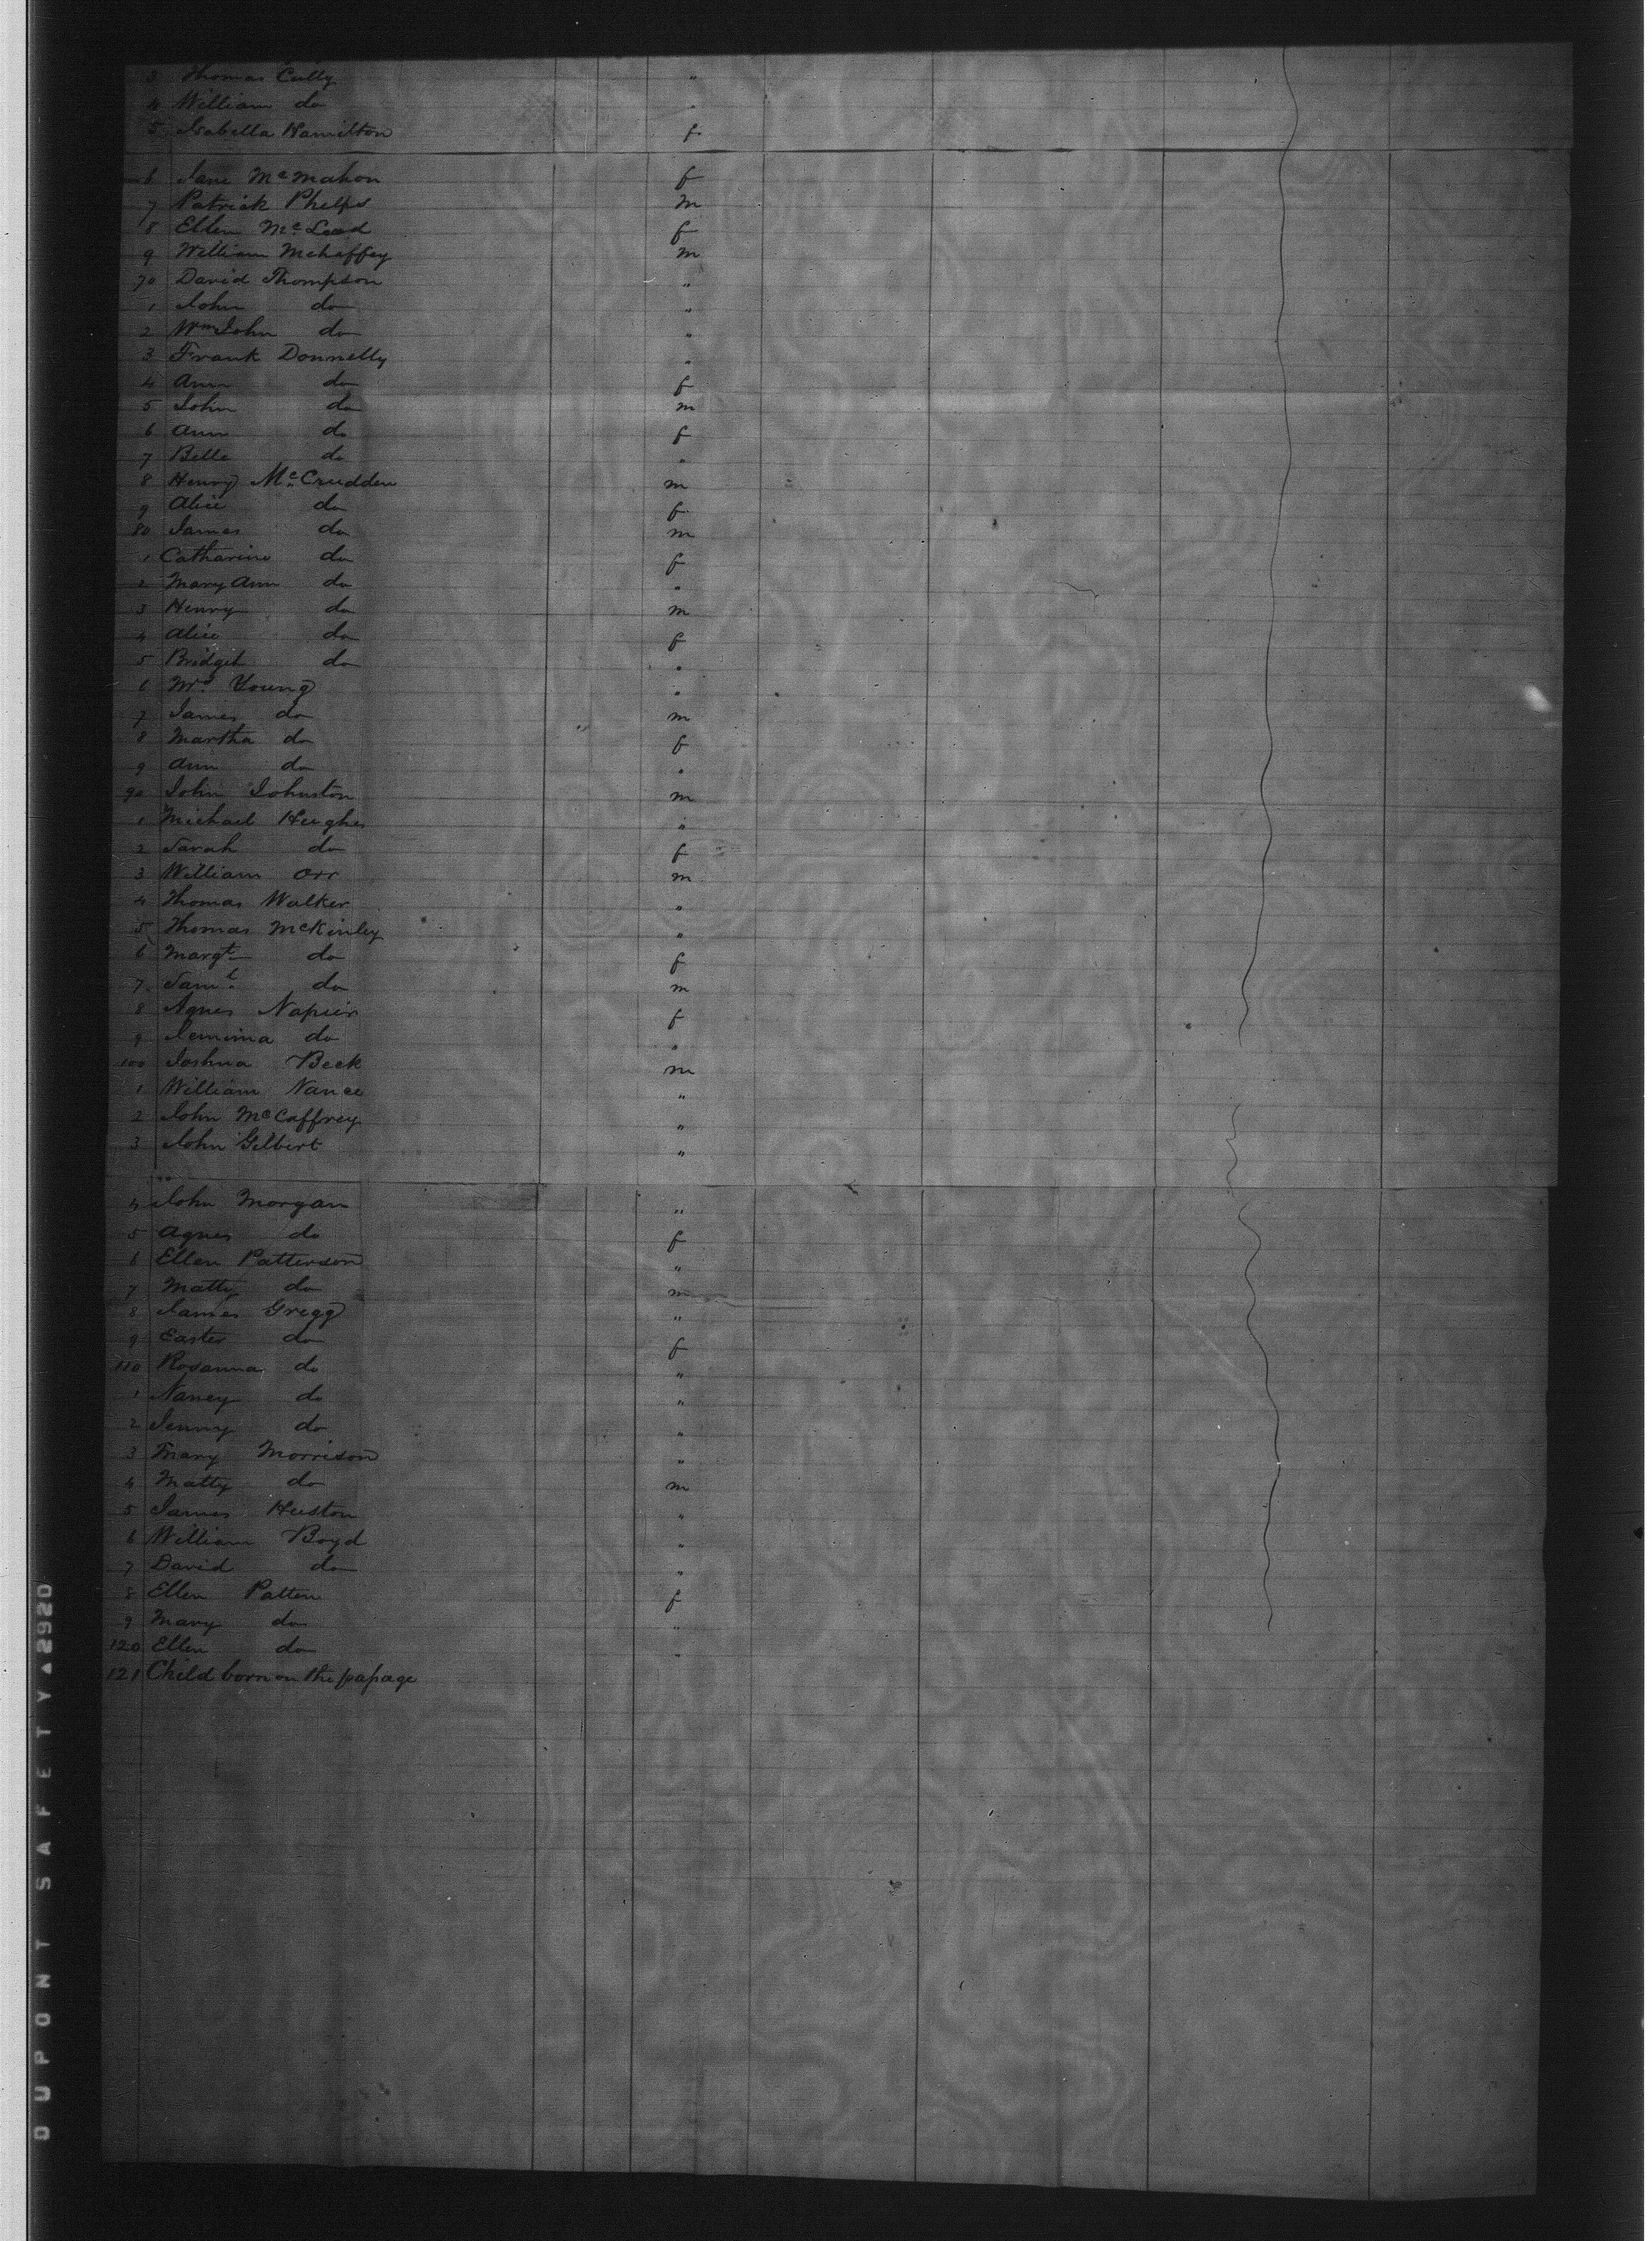 3 Thomas Cully "
4 William do "
5 Isabella Hamilton f
6 Jane Mc Mahon f
7 Patrick Phelps m
8 Ellen Mc Leod f
9 William Mehaffey m
70 David Thompson "
1 John do "
2 Wm John do "
3 Frank Donnelly "
4 Ann do f
5 John do m
6 Ann do f
7 Belle do "
8 Henry Mc Crudden m
9 Alice do f
80 James do m
1 Catharine do f
2 Mary Ann do "
3 Henry do m
4 Alice do f
5 Bridget do "
6 Mrs Young "
7 James do m
8 Martha do f
9 Ann do "
90 John Johnston m
1 Michael Hughes "
2 Sarah do f
3 William Orr m
4 Thomas Walker "
5 Thomas McKinley "
6 Margt do f
7 Saml do m
8 Agnes Napier f
9 Jemima do "
100 Joshua Beck m
1 William Nance "
2 John McCaffrey "
3 John Gilbert "
4 John Morgan "
5 Agnes do f
6 Ellen Patterson "
7 Matty do m
8 James Gregg "
9 Easter do f
110 Rosanna do "
1 Nancy do "
2 Jenny do "
3 Mary Morrison "
4 Matty do m
5 James Huston "
6 William Boyd "
7 David do "
8 Ellen Patten f
9 Mary do "
120 Ellen do "
121 Child born on the passage
DUPONT SAFETY ▲2920